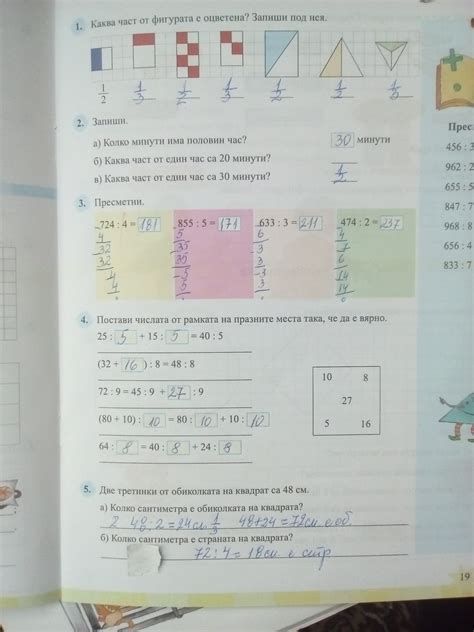 1. Каква част от фигурата е оцветена? Запиши под нея.
1/2 1/3 1/2 1/3 1/2 1/2
2. Запиши.
а) Колко минути има половин час? 30 минути
б) Каква част от един час са 20 минути?
в) Каква част от един час са 30 минути? 1/2
3. Пресметни.
724 : 4 = 181 855 : 5 = 171 633 : 3 = 211 474 : 2 = 237
4 5 6 4
32 35 3 7
32 35 3 6
4 5 3 14
4 5 3 14
4. Постави числата от рамката на празните места така, че да е вярно.
25 : 5 + 15 : 5 = 40 : 5
(32 + 16) : 8 = 48 : 8
72 : 9 = 45 : 9 + 27 : 9
(80 + 10) : 10 = 80 : 10 + 10 : 10
64 : 8 = 40 : 8 + 24 : 8
10 8
27
5 16
5. Две третинки от обиколката на квадрат са 48 см.
а) Колко сантиметра е обиколката на квадрата?
2 48 : 2 = 24 см 1/3 48 + 24 = 72 см. е об.
б) Колко сантиметра е страната на квадрата?
72 : 4 = 18 см е стр
19
Прес
456 : 3
962 : 2
655 : 5
847 : 7
968 : 8
656 : 4
833 : 7